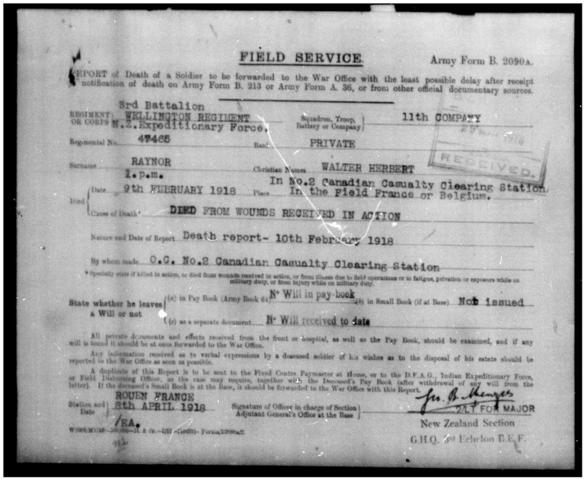 FIELD SERVICE.
Army Form B. 2090A.
REPORT of Death of a Soldier to be forwarded to the War Office with the least possible delay after receipt
of notification of death on Army Form B. 213 or Army Form A. 36, or from other official documentary sources.
3rd Battalion
REGIMENT OR CORPS WELLINGTON REGIMENT
N.Z. Expeditionary Force.
Squadron, Troop, Battery or Company 11th COMPANY
RECEIVED.
Regimental No. 47465 Rank PRIVATE
Surname RAYNOR Christian Names WALTER HERBERT
1.p.m. In No.2 Canadian Casualty Clearing Station
Died Date 9th FEBRUARY 1918 Place In the Field France or Belgium.
Cause of Death* DIED FROM WOUNDS RECEIVED IN ACTION
Nature and Date of Report Death report- 10th February 1918
By whom made O.C. No.2 Canadian Casualty Clearing Station
* Specially state if killed in action, or died from wounds received in action, or from illness due to field operations or to fatigue, privation or exposure while on
military duty, or from injury while on military duty.
State whether he leaves a Will or not
(a) in Pay Book (Army Book 64) No Will in pay-book (b) in Small Book (if at Base) Not issued
(c) as a separate document No Will received to date
All private documents and effects received from the front or hospital, as well as the Pay Book, should be examined, and if any
will is found it should be at once forwarded to the War Office.
Any information received as to verbal expressions by a deceased soldier of his wishes as to the disposal of his estate should be
reported to the War Office as soon as possible.
A duplicate of this Report is to be sent to the Fixed Centre Paymaster at Home, or to the D.F.A.G., Indian Expeditionary Force,
or Field Disbursing Officer, as the case may require, together with the Deceased's Pay Book (after withdrawal of any will from the
latter). If the deceased's Small Book is at the Base, it should be forwarded to the War Office with this Report.
Station and Date ROUEN FRANCE
8th APRIL 1918
Signature of Officer in charge of Section
Adjutant General's Office at the Base
FOR MAJOR
/EA.
New Zealand Section
G.H.Q. 3rd Echelon B.E.F.